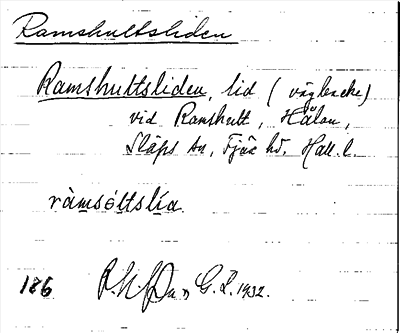 Ramshultsliden
Ramshultsliden, lid (vägbacke)
vid Ramshult, Hålan,
Släps sn, Fjäre hd. Hall. l.
ràmsóltslía.
186 G. L. 1932.